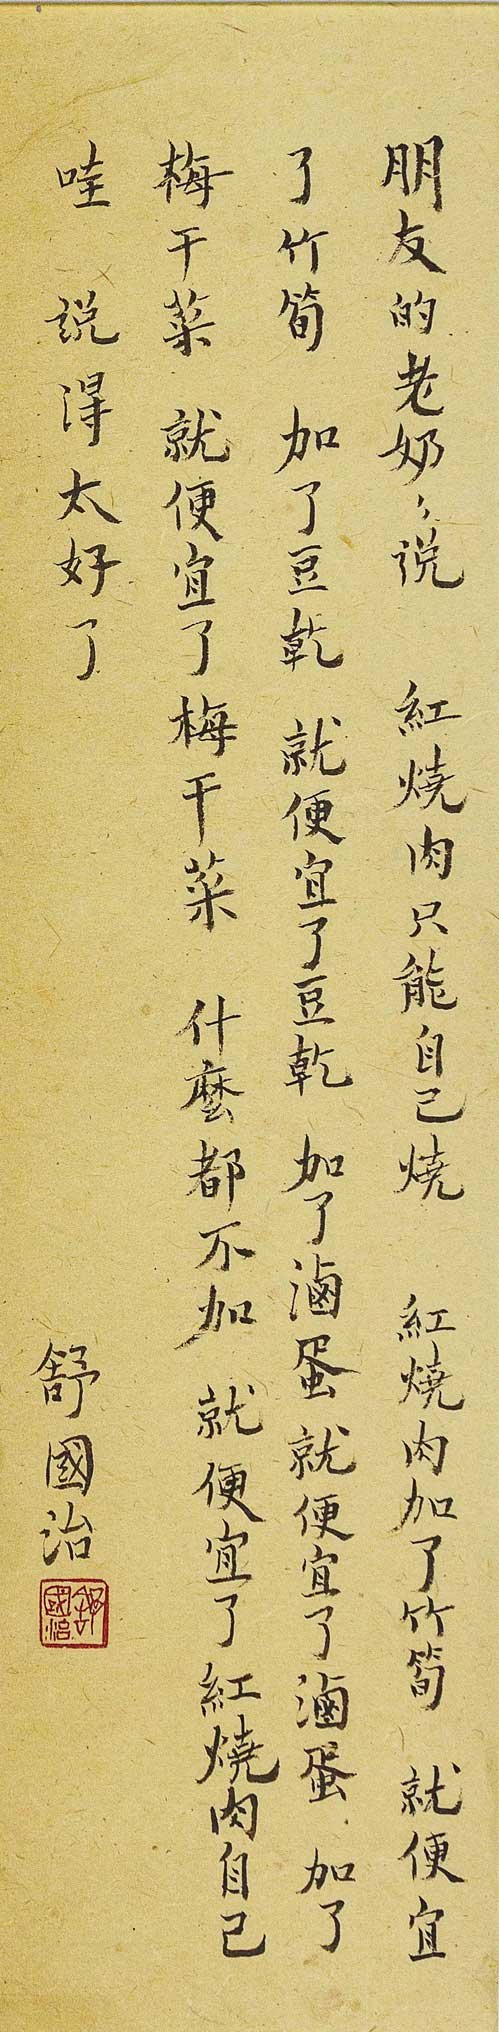 朋友的老奶々说 紅燒肉只能自己燒 紅燒肉加了竹筍 就便宜
了竹筍 加了豆乾 就便宜了豆乾 加了滷蛋就便宜了滷蛋 加了
梅干菜 就便宜了梅干菜 什麼都不加 就便宜了紅燒肉自己
哇 説得太好了
舒國治
舒國治